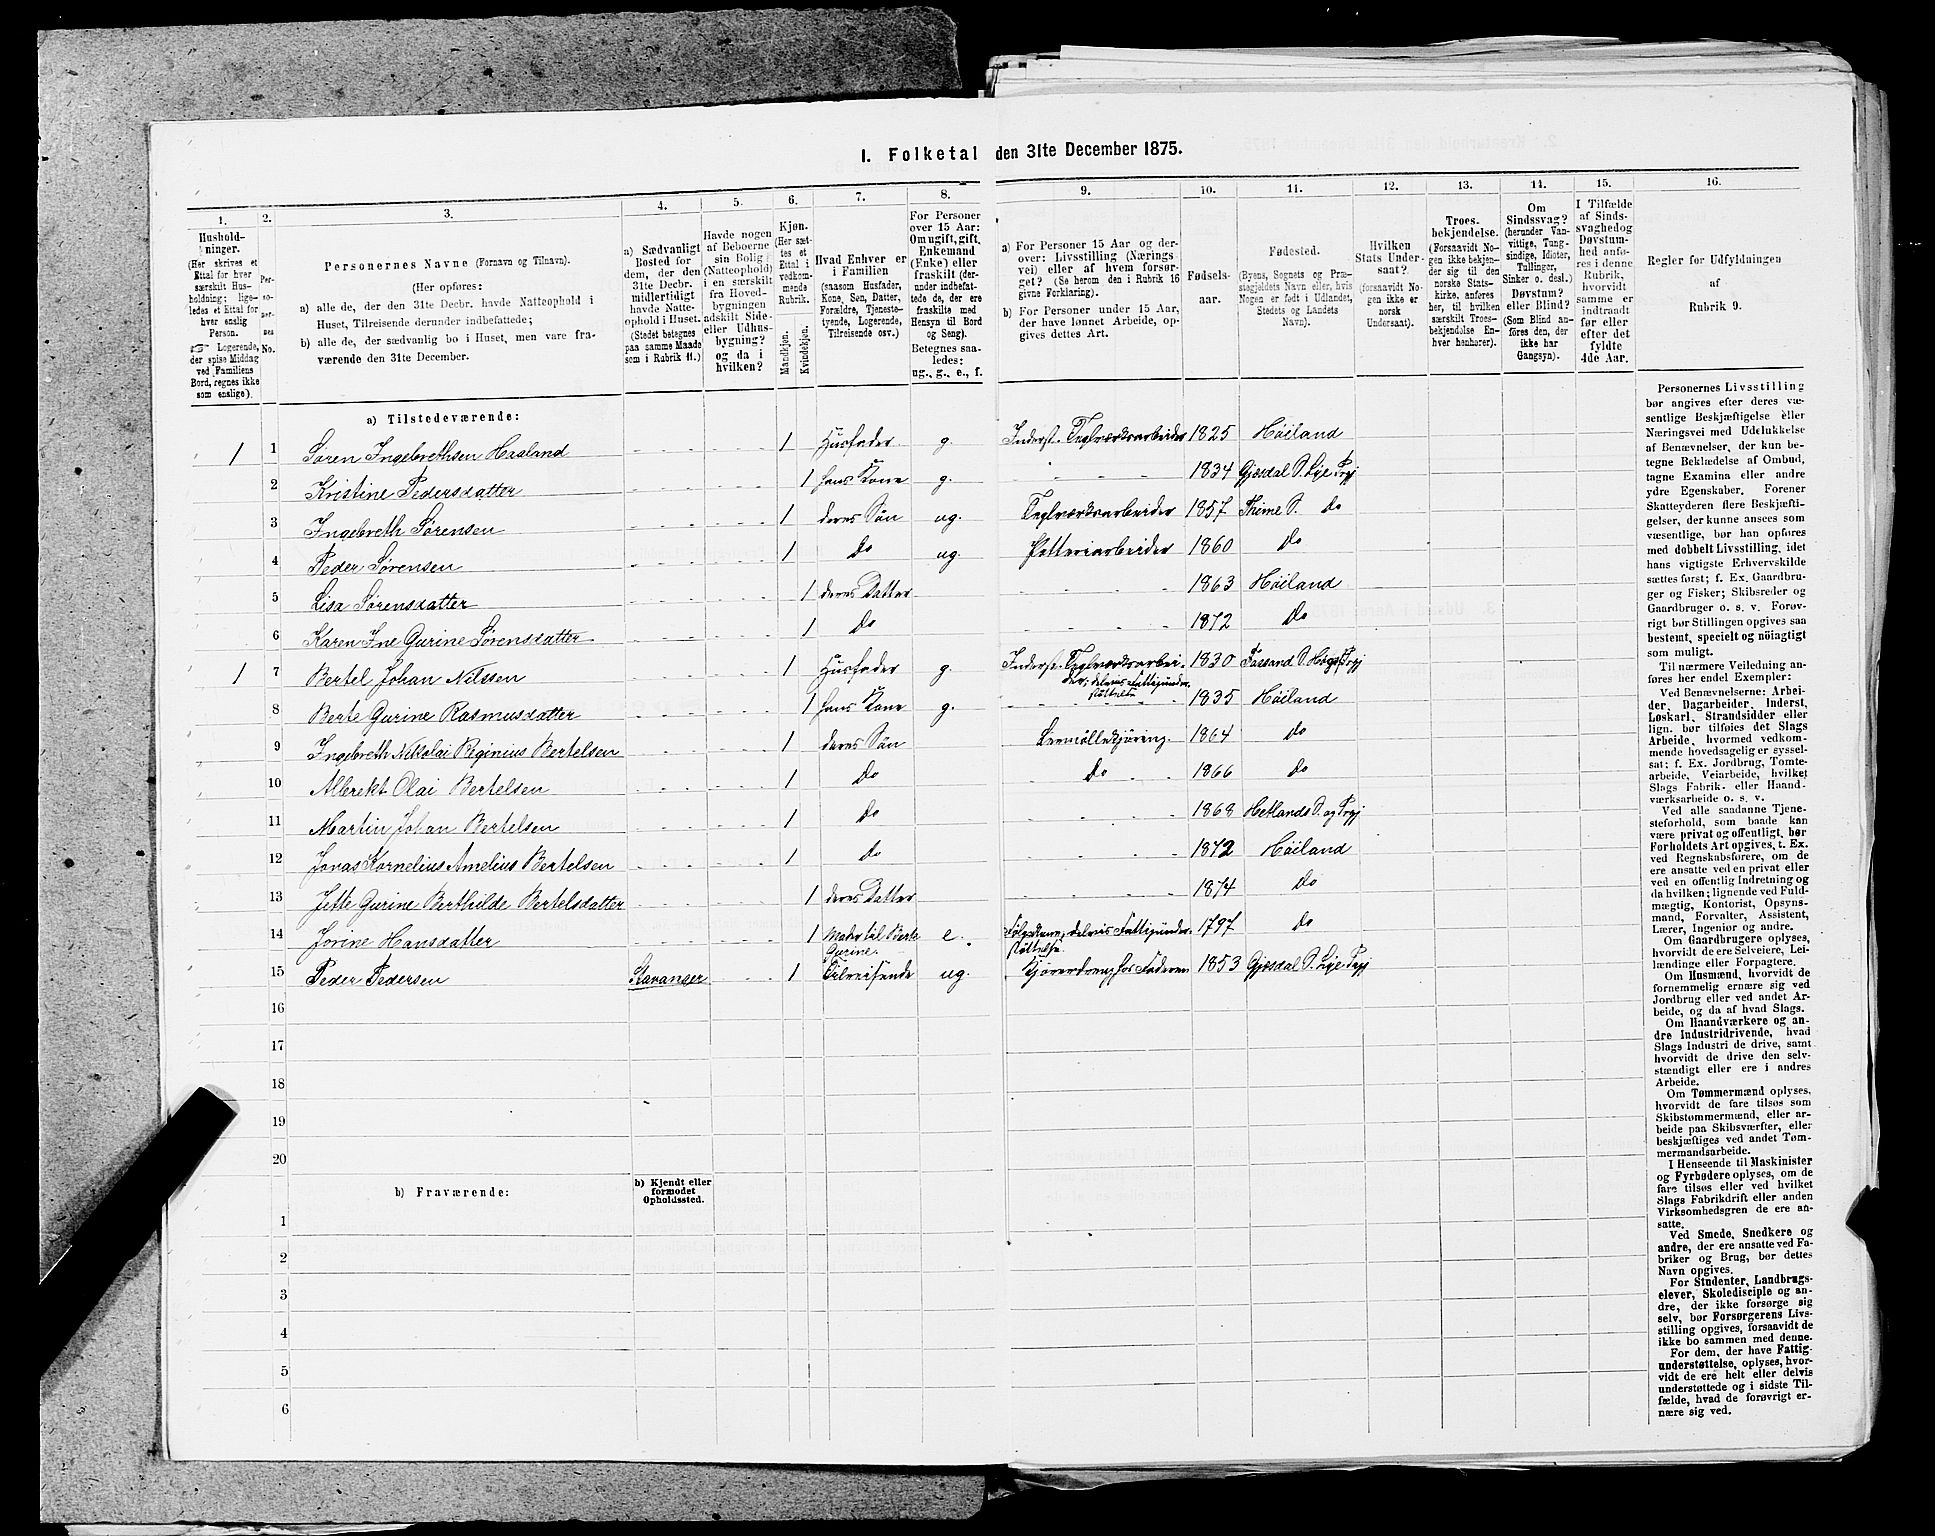 1. Folketal den 31te December 1875.
1. 2. 3. 4. 5. 6. 7. 8. 9. 10. 11. 12. 13. 14. 15. 16.
Hushold-
ninger.
(Her skrives et
Ettal for hver
særskilt Hus-
holdning; lige-
ledes et Ettal for
hver enslig
Person.
☞ Logerende,
der spise Middag
ved Familiens
Bord, regnes ikke
som enslige).
Per-
so-
ner-
nes
No.
Personernes Navne (Fornavn og Tilnavn).
(Her opføres:
a) alle de, der den 31te Decbr. havde Natteophold i
Huset, Tilreisende derunder indbefattede;
b) alle de, der sædvanlig bo i Huset, men vare fra-
værende den 31te December.
a) Sædvanligt
Bosted for
dem, der den
31te Decbr.
midlertidigt
havde Natte-
ophold i Huset.
(Stedet betegnes
paa samme Maade
som i Rubrik 11.)
Havde nogen
af Beboerne
sin Bolig
(Natteophold)
i en særskilt
fra Hoved-
bygningen
adskilt Side-
eller Udhus-
bygning?
og da i
hvilken?
Kjøn.
(Her sæt-
tes et
Ettal i
vedkom-
mende
Rubrik.
Mandkjøn.
Kvindekjøn.
Hvad Enhver er
i Familien
(saasom Husfader,
Kone, Søn, Datter,
Forældre, Tjeneste-
tyende, Logerende,
Tilreisende osv.)
For Personer
over 15 Aar:
Om ugift, gift,
Enkemand
(Enke) eller
fraskilt (der-
under indbefat-
tede de, der ere
fraskilte med
Hensyn til Bord
og Seng).
Betegnes saa-
ledes:
ug., g., e., f.
a) For Personer 15 Aar og der-
over: Livsstilling (Nærings
vei) eller af hvem forsør-
get? (Se herom den i Rubrik 16
givne Forklaring).
b) For Personer under 15 Aar,
der have lønnet Arbeide, op-
gives dettes Art.
Fødsels-
aar.
Fødested.
(Byens, Sognets og Præ-
stegjeldets Navn eller, hvis
Nogen er født i Udlandet,
Stedets og Landets
Navn).
Hvilken
Stats Under-
saat?
(forsaavidt No-
gen ikke er
norsk
Undersaat).
Troes-
bekjendelse.
(Forsaavidt No-
gen ikke bekjen-
der sig til den
norske Stats-
kirke, anføres
her, til hvilken
særskilt Troes-
bekjendelse En-
hver henhører).
Om
Sindssvag?
(herunder Van-
vittige, Tung-
sindige, Idioter,
Tullinger,
Sinker o. desl.)
Døvstum?
eller Blind?
(Som Blind an-
føres den, der
ikke har
Gangsyn).
I Tilfælde
af Sinds-
svaghed og
Døvstum-
hed anfø-
res i denne
Rubrik,
hvorvidt
samme er
indtraadt
før eller
efter det
fyldte
4de Aar.
Regler for Udfyldningen
af
Rubrik 9.
a) Tilstedeværende:
1 1 Søren Ingebrethsen Haaland 1 Husfader g. Inderst. Teglværksarbeider 1825 Höiland
2 Kristine Pedersdatter 1 hans Kone g. 1834 Gjæsdal S. Lye Prgj
3 Ingebreth Sørensen 1 deres Sön ug. Teglværksarbeider 1857 Thime S. do
4 Peder Sørensen 1 do ug. Potteriarbeider 1860 do
5 Lisa Sørensdatter 1 deres Datter 1863 Höiland
6 Karen Ine Gurine Sørensdatter 1 do 1872 do
1 7 Bertel Johan Nilssen 1 Husfader g. Inderst. Teglværksarbei-
der; delvis Fattigunder-
støttelse 1830 Fossand S. Høgsf. Prgj
8 Berte Gurine Rasmusdatter 1 hans Kone g. 1835 Höiland
9 Ingebreth Nikolai Reginius Bertelsen 1 deres Sön Leermöllekjöring 1864 do
10 Albrekt Olai Bertelsen 1 do do 1866 do
11 Martin Johan Bertelsen 1 do 1868 Hetlands S. og Prgj
12 Jonas Kornelius Amelius Bertelsen 1 do 1872 Höiland
13 Jette Gurine Berthilde Bertelsdatter 1 deres Datter 1874 do
14 Jorine Hansdatter 1 Moder til Berte
Gurine. e. Følgekone, delvis Fattigunder-
støttelse. 1797 do
15 Peder Pedersen Stavanger 1 Tilreisende ug. Kjörerdreng hos Faderen 1853 Gjæsdal S. Lye Prgj
16
17
18
19
20
b) Fraværende:
b) Kjendt eller
formodet
Opholdssted.
1
2
3
4
5
6
Personernes Livsstilling
bør angives efter deres væ-
sentlige Beskjæftigelse eller
Næringsvei med Udelukkelse
af Benævnelser, der kun be-
tegne Beklædelse af Ombud,
tagne Examina eller andre
ydre Egenskaber. Forener
Skatteyderen flere Beskjæfti-
gelser, der kunne ansees som
væsentlige, bør han opføres
med dobbelt Livsstilling, idet
hans vigtigste Erhvervskilde
sættes først; f. Ex. Gaardbru-
ger og Fisker; Skibsreder og
Gaardbruger o. s. v. Forøv-
rigt bør Stillingen opgives saa
bestemt, specielt og nöiagtigt
som muligt.
Til nærmere Veiledning an-
føres her endel Exempler:
Ved Benævnelserne: Arbei-
der, Dagarbeider, Inderst,
Løskarl, Strandsidder eller
lign. bør tilføies det Slags
Arbeide, hvormed vedkom-
mende hovedsagelig er syssel-
sat; f. Ex. Jordbrug, Tomte-
arbeide, Veiarbeide, hvilket
Slags Fabrik- eller Haand-
værksarbeide o. s. v.
Ved alle saadanne Tjene-
steforhold, som baade kan
være privat og offentligt, bør
Forholdets Art opgives, t. Ex.
ved Regnskabsførere, om de
ere ansatte ved en privat eller
ved en offentlig Indretning og
da hvilken; lignende ved Fuld-
mægtig, Kontorist, Opsyns-
mand, Forvalter, Assistent,
Lærer, Ingeniør og andre.
Om Gaardbrugere oplyses,
hvorvidt de ere Selveiere, Lei-
lændinge eller Forpagtere.
Om Husmænd, hvorvidt de
fornemmelig ernære sig ved
Jordbrug eller ved andet Ar-
beide, og da af hvad Slags.
Om Haandværkere og an-
dre Industridrivende, hvad
Slags Industri de drive, samt
hvorvidt de drive den selv-
stændigt eller ere i andres
Arbeide.
Om Tømmermænd oplyses,
hvorvidt de fare tilsøs som
Skibstømmermænd, eller ar-
beide paa Skibsværfter, eller
beskjæftiges ved andet Tøm-
mermandsarbeide.
I Henseende til Maskinister
og Fyrbødere oplyses, om de
fare tilsøs eller ved hvilket
Slags Fabrikdrift eller anden
Virksomhedsgren de ere an-
satte.
Ved Smede, Snedkere og
andre, der ere ansatte ved Fa-
briker og Brug, bør dettes
Navn opgives.
For Studenter, Landbrugs-
elever, Skoledisciple og an-
dre, der ikke forsørge sig
selv, bør Forsørgerens Livs-
stilling opgives, forsaavidt de
ikke bo sammen med denne.
For dem, der have Fattig-
understøttelse, oplyses, hvor-
vidt de ere helt eller delvis
understøttede og i sidste Til-
fælde, hvad de forøvrigt er-
nære sig ved.